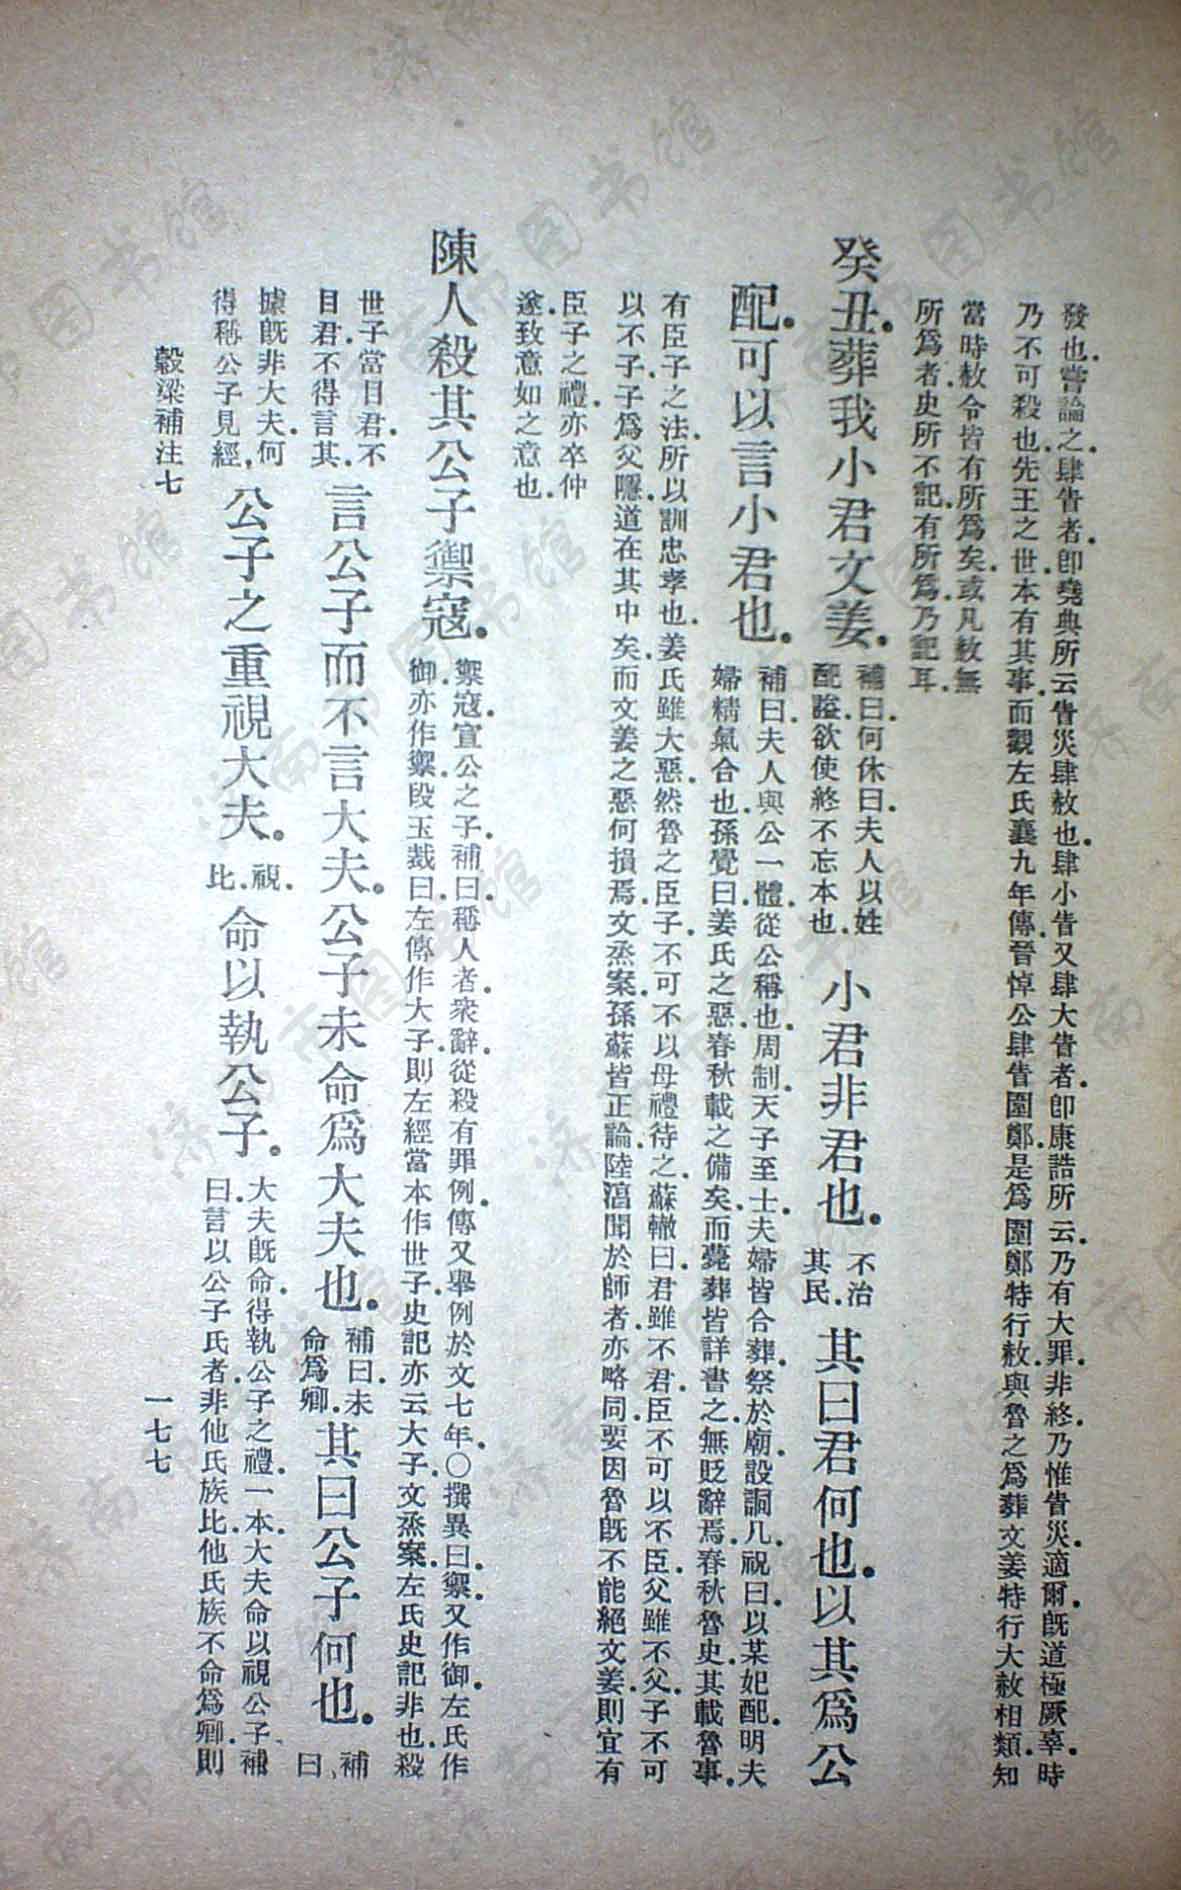 發也。嘗論之。肆眚者。卽堯典所云眚災肆赦也。肆小眚又肆大眚者。卽康誥所云。乃有大罪。非終。乃惟眚災。適爾。旣道極厥辜。時
乃不可殺也。先王之世。本有其事。而觀左氏襄九年傳。晉悼公肆眚圍鄭。是爲圍鄭特行赦。與魯之爲葬文姜特行大赦相類。知
當時赦令皆有所爲矣。或凡赦無
所爲者。史所不記。有所爲。乃記耳。
癸丑。葬我小君文姜。
補曰。何休曰。夫人以姓
配謚。欲使終不忘本也。
小君非君也。
不治
其民。
其曰君何也。以其爲公
配。可以言小君也。
補曰。夫人與公一體。從公稱也。周制。天子至士。夫婦皆合葬。祭於廟。設詷几。祝曰。以某妃配。明夫
婦精氣合也。孫覺曰。姜氏之惡。春秋載之備矣。而薨葬皆詳書之。無貶辭焉。春秋魯史。其載魯事。
有臣子之法。所以訓忠孝也。姜氏雖大惡。然魯之臣子。不可不以母禮待之。蘇轍曰。君雖不君。臣不可以不臣。父雖不父。子不可
以不子。子爲父隱。道在其中矣。而文姜之惡何損焉。文烝案。孫蘇皆正論。陸淳聞於師者。亦略同。要因魯旣不能絕文姜。則宜有
臣子之禮。亦卒仲
遂致意如之意也。
陳人殺其公子禦寇。
禦寇。宣公之子。補曰。稱人者。衆辭。從殺有罪例。傳又舉例於文七年。○撰異曰。禦。又作御。左氏作
御。亦作禦。段玉裁曰。左傳作大子。則左經當本作世子。史記亦云大子。文烝案。左氏史記非也。殺
世子當目君。不
目君。不得言其。
言公子而不言大夫。公子未命爲大夫也。
補曰。未
命爲卿。
其曰公子何也。
補
曰、
據旣非大夫。何
得稱公子見經。
公子之重視大夫。
視。
比。
命以執公子。
大夫旣命。得執公子之禮。一本。大夫命以視公子。補
曰。言以公子氏者。非他氏族比。他氏族不命爲卿。則
穀梁補注七
一七七